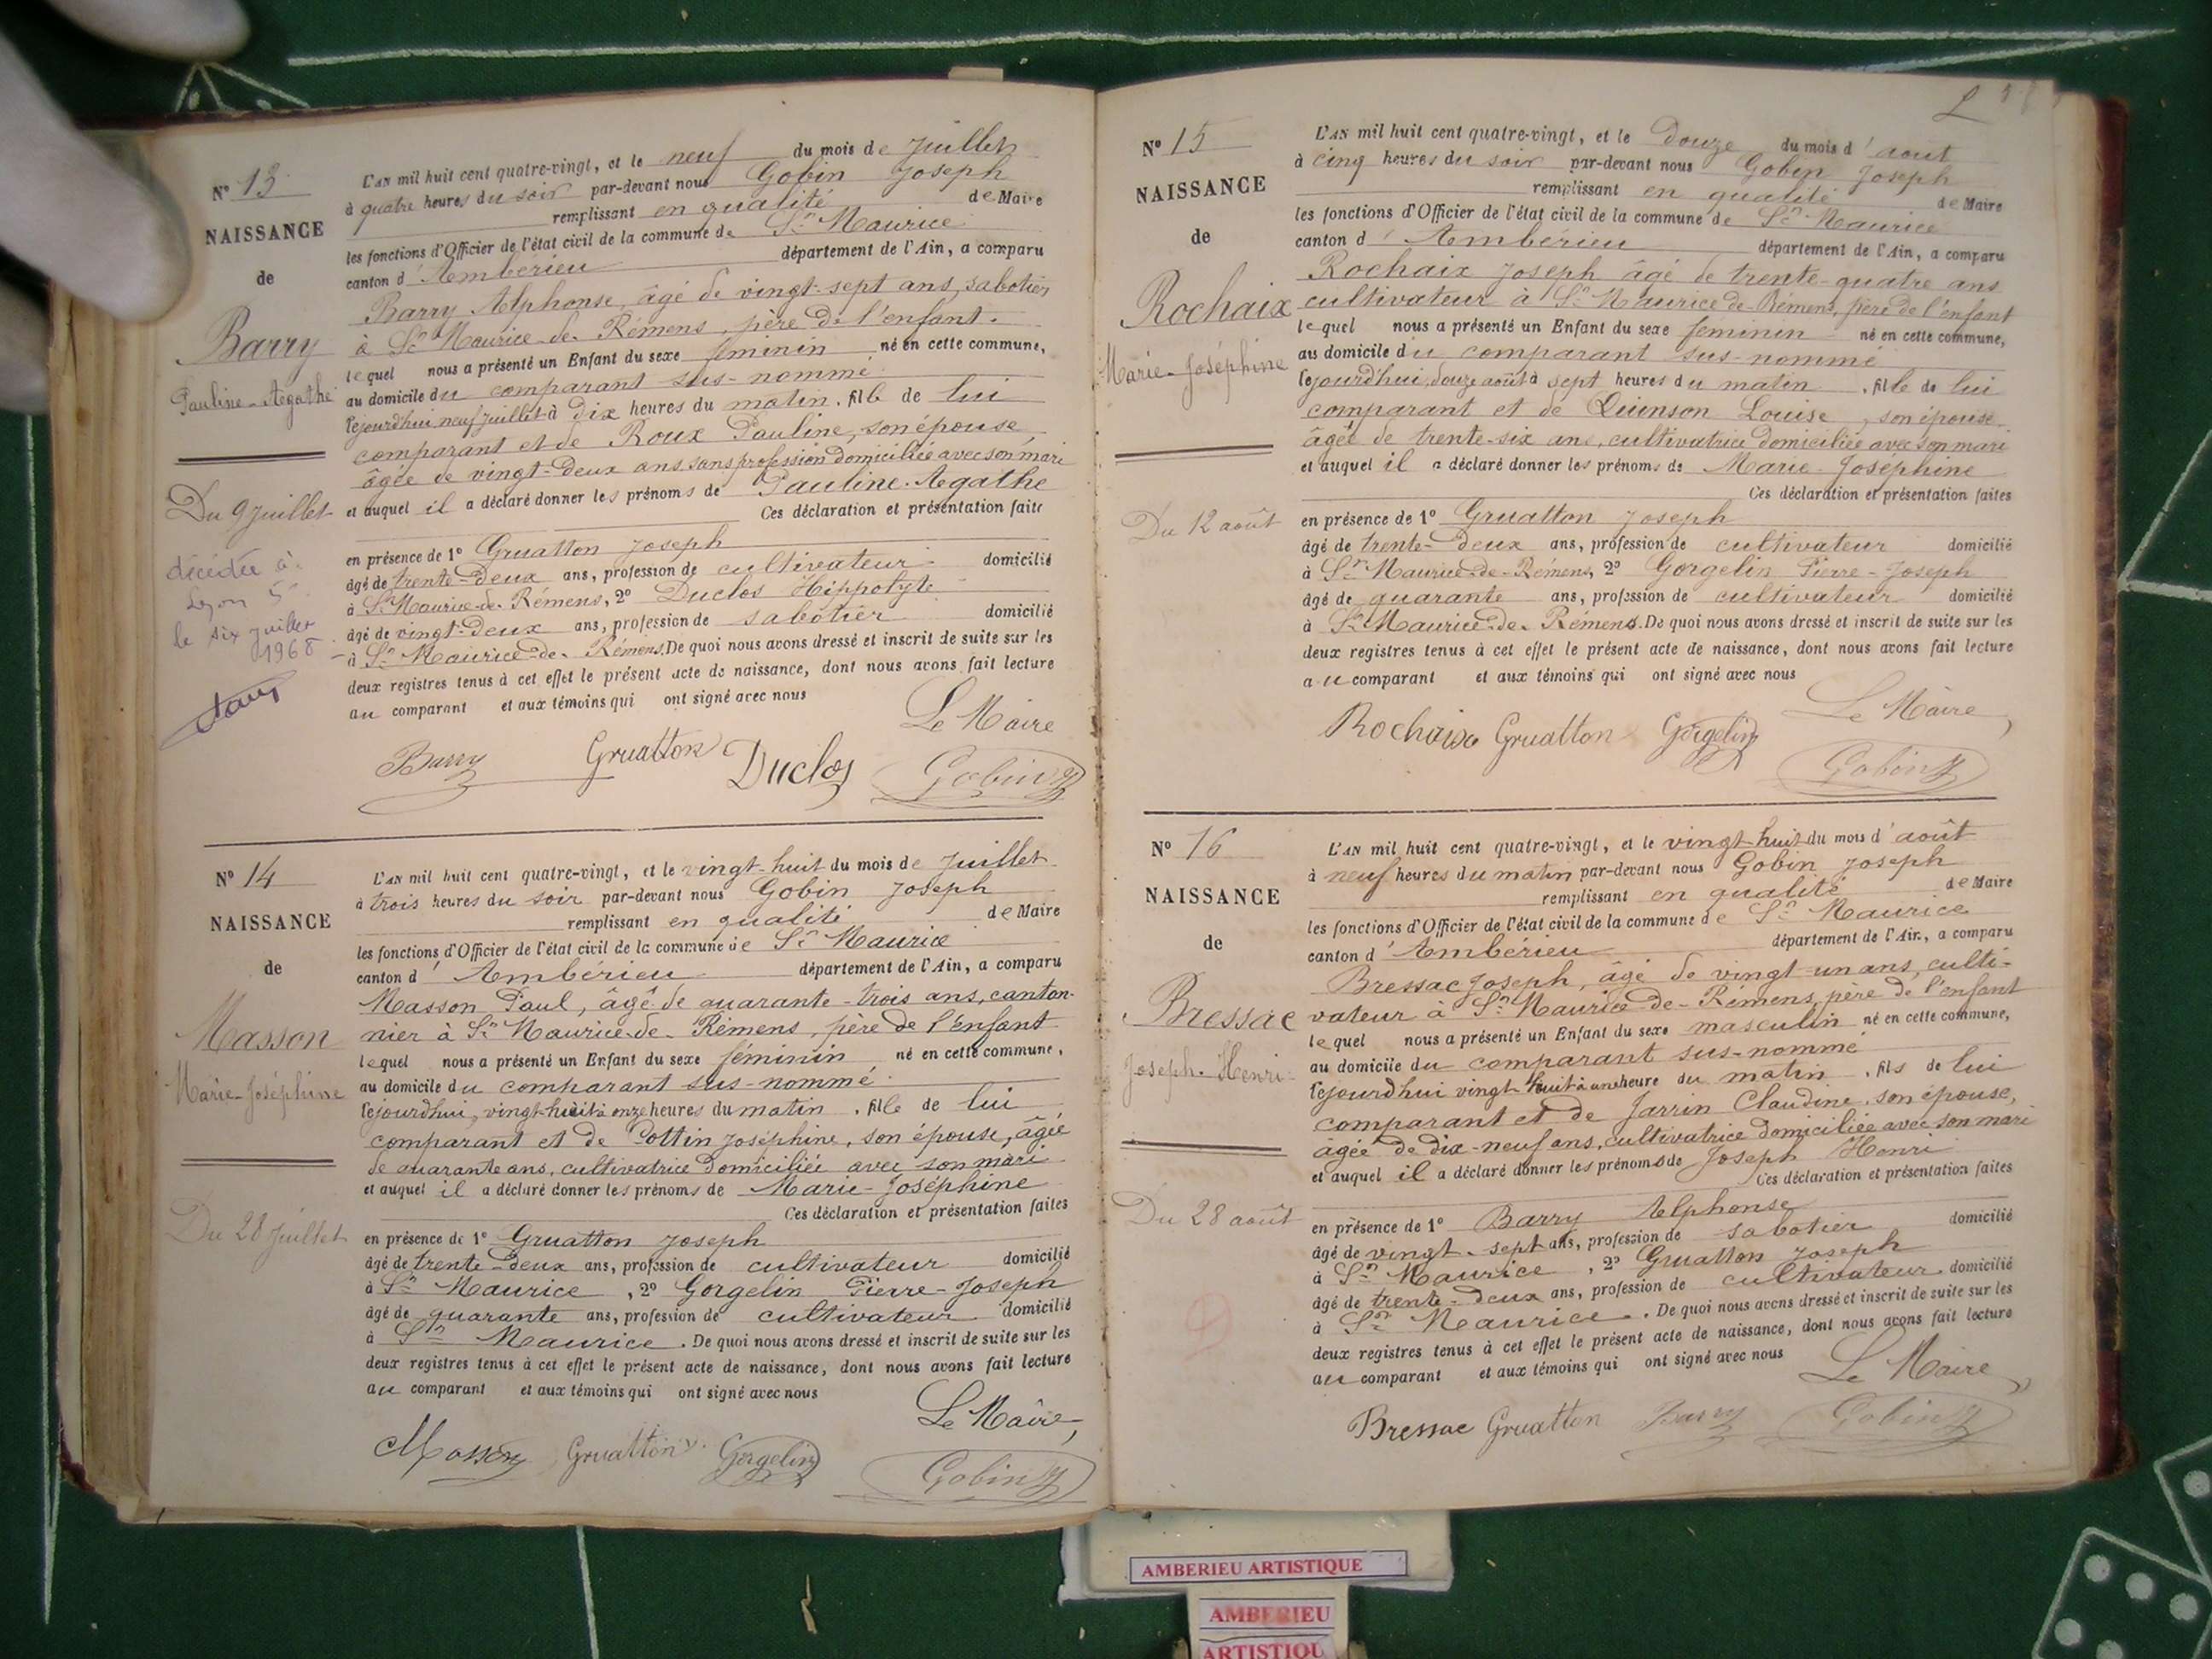 N° 13
NAISSANCE
de
Barry
Pauline-Agathe
Du 9 juillet
décédée à
Lyon 5e
le six juillet
1968
L'AN mil huit cent quatre-vingt, et le neuf du mois de Juillet
à quatre heures du soir par-devant nous Gobin Joseph
remplissant en qualité de Maire
les fonctions d'Officier de l'état civil de la commune de St Maurice
canton d'Ambérieu département de l'Ain, a comparu
Barry Alphonse, âgé de vingt-sept ans, sabotier
à St Maurice-de-Rémens, père de l'enfant.
lequel nous a présenté un Enfant du sexe féminin né en cette commune,
au domicile du comparant sus-nommé
cejourd'hui neuf juillet à dix heures du matin, fille de lui
comparant et de Roux Pauline, son épouse,
âgée de vingt-deux ans sans profession domiciliée avec son mari
et auquel il a déclaré donner les prénoms de Pauline-Agathe
Ces déclaration et présentation faites
en présence de 1° Gruatton Joseph
âgé de trente-deux ans, profession de cultivateur domicilié
à St Maurice-de-Rémens, 2° Duclos Hippolyte
âgé de vingt-deux ans, profession de sabotier domicilié
à St Maurice-de-Rémens. De quoi nous avons dressé et inscrit de suite sur les
deux registres tenus à cet effet le présent acte de naissance, dont nous avons fait lecture
au comparant et aux témoins qui ont signé avec nous
Le Maire
Barry Gruatton Duclos Gobin
N° 14
NAISSANCE
de
Masson
Marie-Joséphine
Du 28 juillet
L'AN mil huit cent quatre-vingt, et le vingt-huit du mois de Juillet
à trois heures du soir par-devant nous Gobin Joseph
remplissant en qualité de Maire
les fonctions d'Officier de l'état civil de la commune de St Maurice
canton d'Ambérieu département de l'Ain, a comparu
Masson Paul, âgé de quarante-trois ans, canton-
nier à St Maurice-de-Rémens, père de l'enfant
lequel nous a présenté un Enfant du sexe féminin né en cette commune,
au domicile du comparant sus-nommé
cejourd'hui, vingt-huit à onze heures du matin, fille de lui
comparant et de Pottin Joséphine, son épouse, âgée
de quarante ans, cultivatrice domiciliée avec son mari
et auquel il a déclaré donner les prénoms de Marie-Joséphine
Ces déclaration et présentation faites
en présence de 1° Gruatton Joseph
âgé de trente-deux ans, profession de cultivateur domicilié
à St Maurice, 2° Gorgelin Pierre-Joseph
âgé de quarante ans, profession de cultivateur domicilié
à St Maurice. De quoi nous avons dressé et inscrit de suite sur les
deux registres tenus à cet effet le présent acte de naissance, dont nous avons fait lecture
au comparant et aux témoins qui ont signé avec nous
Le Maire,
Masson Gruatton Gorgelin Gobin
N° 15
NAISSANCE
de
Rochaix
Marie-Joséphine
Du 12 août
L'AN mil huit cent quatre-vingt, et le douze du mois d'aout
à cinq heures du soir par-devant nous Gobin Joseph
remplissant en qualité de Maire
les fonctions d'Officier de l'état civil de la commune de St Maurice
canton d'Ambérieu département de l'Ain, a comparu
Rochaix Joseph âgé de trente-quatre ans
cultivateur à St Maurice de Rémens, père de l'enfant
lequel nous a présenté un Enfant du sexe feminin né en cette commune,
au domicile du comparant sus-nommé
cejourd'hui, douze août à sept heures du matin, fille de lui
comparant et de Quinson Louise, son épouse
âgée de trente-six ans, cultivatrice domiciliée avec son mari
et auquel il a déclaré donner les prénoms de Marie-Joséphine
Ces déclaration et présentation faites
en présence de 1° Gruatton Joseph
âgé de trente-deux ans, profession de cultivateur domicilié
à St Maurice-de-Rémens, 2° Gorgelin Pierre-Joseph
âgé de quarante ans, profession de cultivateur domicilié
à St Maurice-de-Rémens. De quoi nous avons dressé et inscrit de suite sur les
deux registres tenus à cet effet le présent acte de naissance, dont nous avons fait lecture
au comparant et aux témoins qui ont signé avec nous
Le Maire,
Rochaix Gruatton Gorgelin
Gobin
N° 16
NAISSANCE
de
Bressac
Joseph-Henri
Du 28 août
L'AN mil huit cent quatre-vingt, et le vingt-huit du mois d'août
à neuf heures du matin par-devant nous Gobin Joseph
remplissant en qualité de Maire
les fonctions d'Officier de l'état civil de la commune de St Maurice
canton d'Ambérieu département de l'Ain, a comparu
Bressac Joseph, âgé de vingt-un ans, culti-
vateur à St Maurice-de-Rémens, père de l'enfant
lequel nous a présenté un Enfant du sexe masculin né en cette commune,
au domicile du comparant sus-nommé
cejourd'hui vingt-huit à une heure du matin, fils de lui
comparant et de Jarrin Claudine, son épouse,
âgée de dix-neuf ans, cultivatrice domiciliée avec son mari
et auquel il a déclaré donner les prénoms de Joseph Henri
Ces déclaration et présentation faites
en présence de 1° Barry Alphonse
âgé de vingt-sept ans, profession de sabotier domicilié
à St Maurice, 2° Gruatton Joseph
âgé de trente-deux ans, profession de cultivateur domicilié
à St Maurice. De quoi nous avons dressé et inscrit de suite sur les
deux registres tenus à cet effet le présent acte de naissance, dont nous avons fait lecture
au comparant et aux témoins qui ont signé avec nous
Le Maire
Bressac Gruatton Barry Gobin
AMBERIEU ARTISTIQUE
AMBERIEU
ARTISTIQU